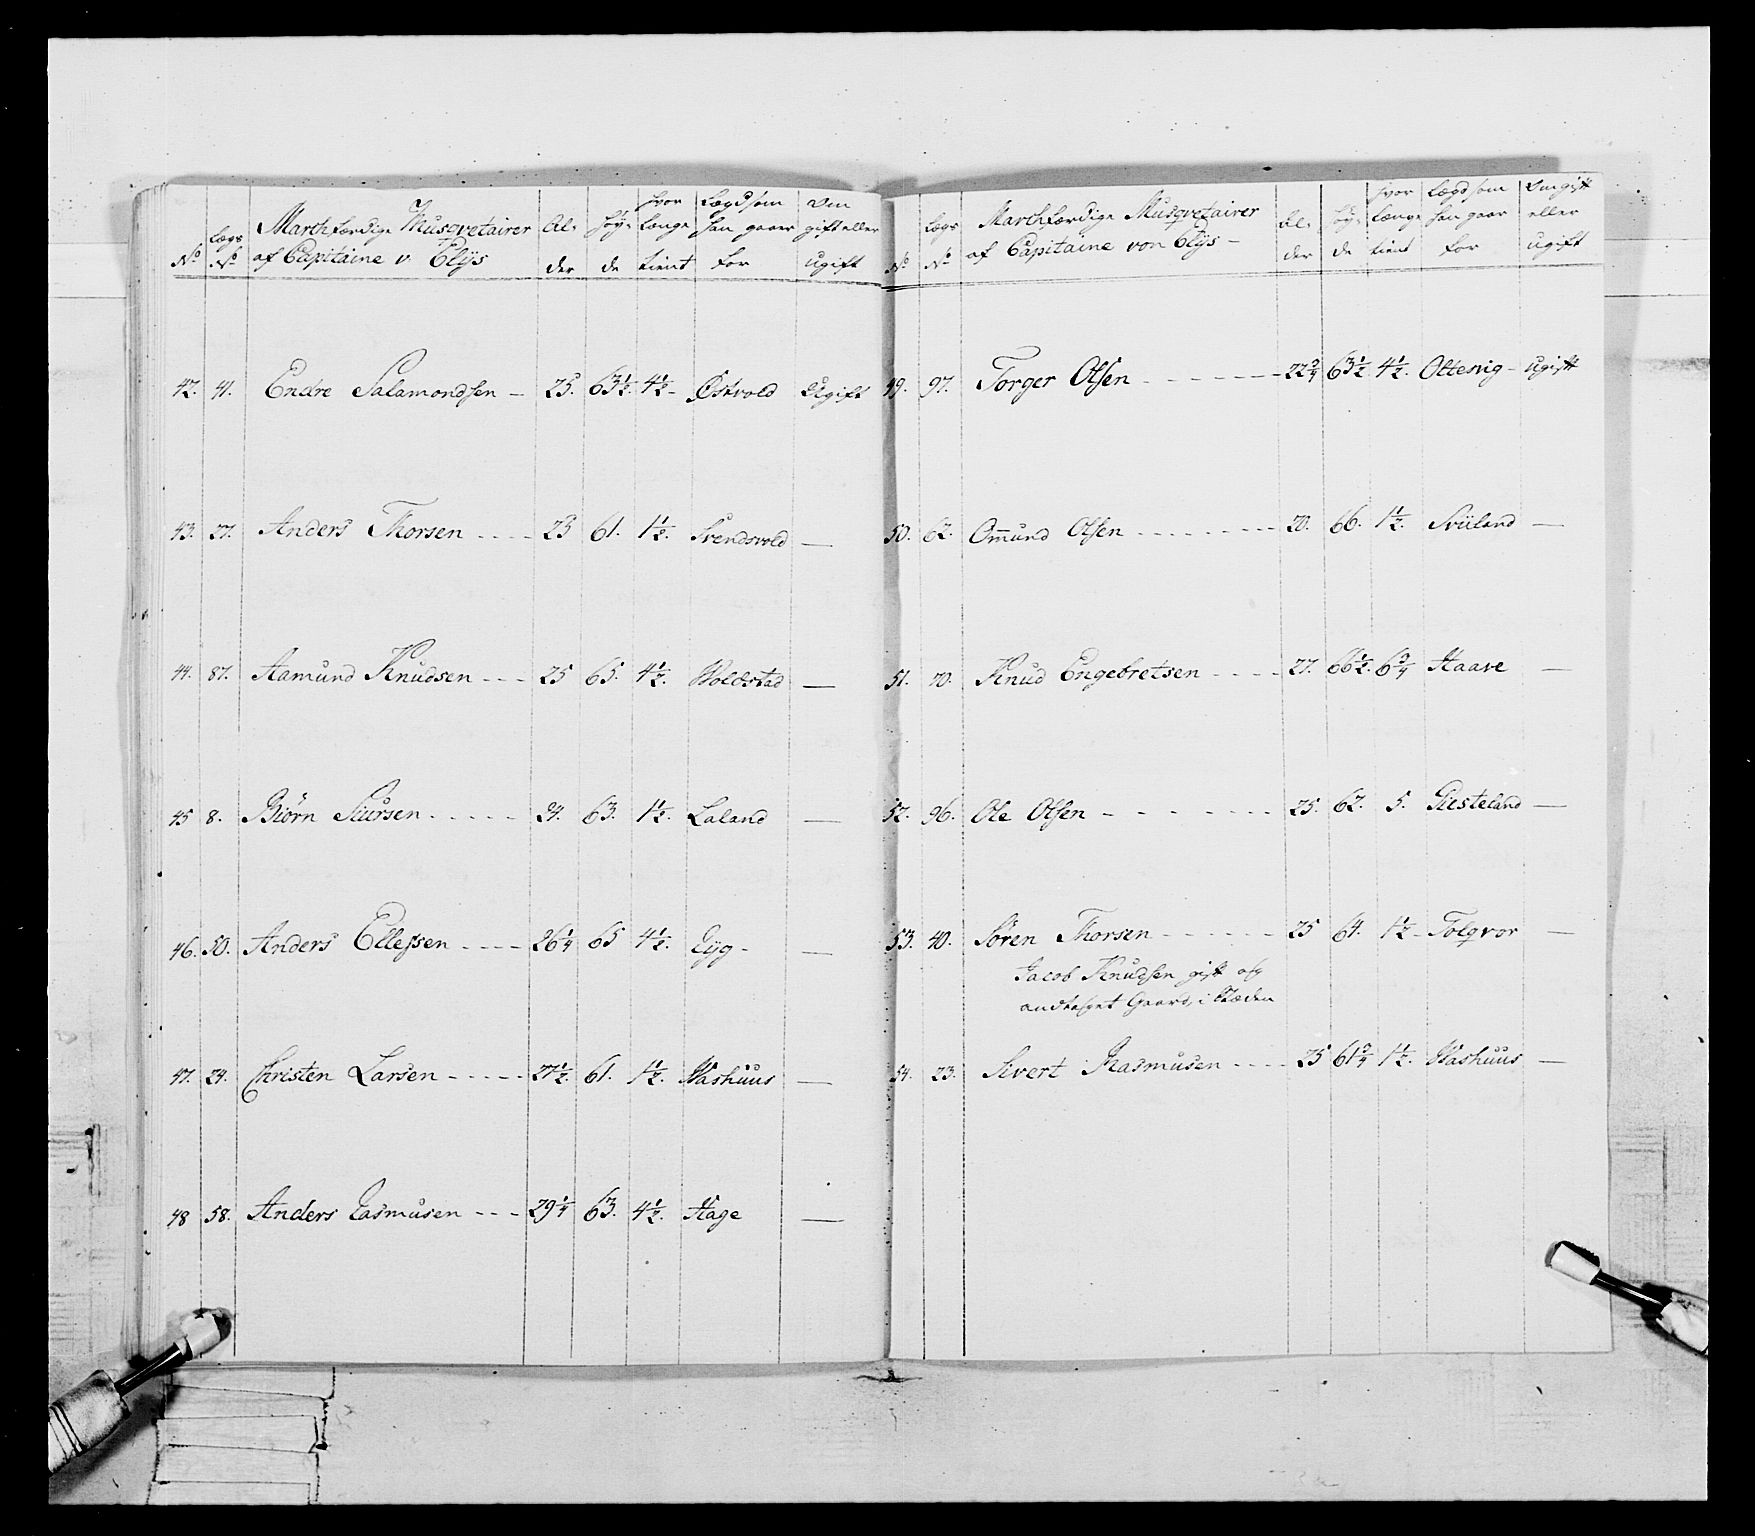 No Lægs No Marchfærdige Musqvetairer af Capitaine v. Clÿs Al- der Høy- de hvor længe tient Lægd som han gaaer for Om gift eller ugift
42. 41. Endre Salamondsen 25. 63½. 4½ Østvold Ugift
43. 27. Anders Thorsen 23 61. 1½. Svendsvold —
44. 87. Aamund Knudsen 25 65. 4½. Woldstad —
45 8. Biørn Siursen 24. 63. 1½. Laland —
46. 50. Anders Ellefsen 26¼ 65 4½. Eÿg —
47. 24. Christen Larsen 27½. 61. 1½. Washuus —
48 58. Anders Rasmusen 29¼ 63. 4½. Hage —
No Lægs No Marchfærdige Musqvetairer af Capitaine von Clÿs Al- der Høy- de hvor længe tient Lægd som han gaar for Om gift eller ugift
49. 97. Torger Olsen 22¾ 63½ 4½. Ottesvig ugift
50. 62. Omund Olsen 20. 66. 1½. Sviland —
51. 70. Knud Engebretsen 27. 66½. 6¾ Haave —
52. 96. Ole Olsen 25. 62. 5. Giesteland —
53. 40. Søren Thorsen 25 64. 1½ Tolqvor —
Jacob Knudsen gift og
Gaard, i Stæden
54. 23. Sivert Rasmusen 25 61¾ 1½. Washuus —